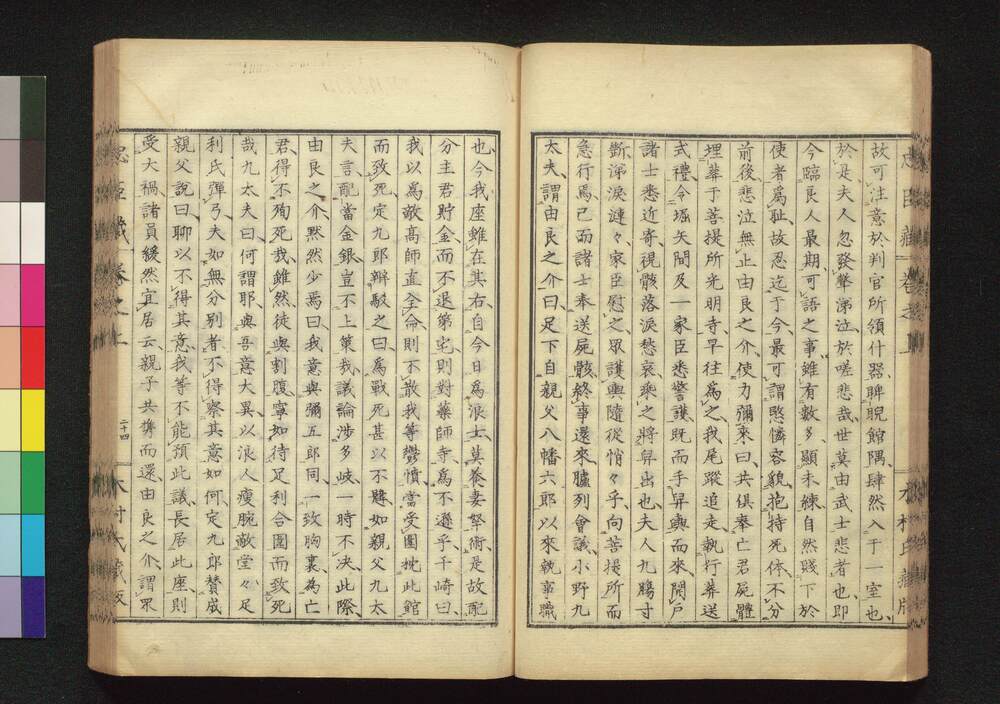 故可注意於判官所領什器、睥睨館隅、肆然入于一室也、
於是夫人忽發聲涕泣、於嗟悲哉、世莫由武士悲者也、即
今臨良人最期、可語之事雖有數多、顯未練自然賤下於
使者爲耻、故忍迄于今、最可謂愍憐容貌、抱持死体、不分
前後悲泣無止、由良之介、使力彌來曰、共俱奉亡君屍體
埋葬于菩提所光明寺、早往爲之、我尾蹤追走、執行葬送
式禮、令堀矢間及一家臣悉警護、既而手舁輿而來、開戶
諸士悉近寄、視骸落涙愁哀、乘之將舁出也、夫人九膓寸
斷、涕涙漣々、家臣慰之、眾護輿隨從、悄々乎、向菩提所而
急行焉、已而諸士奉送屍骸、終事還來、臚列會議、小野九
太夫、謂由良之介曰、足下自親父八幡六郎以來執事職
也、今我座雖在其右、自今日爲浪士、莫養妻孥術、是故配
分主君貯金、而不退第宅、則對藥師寺、爲不遜乎、千崎曰、
我以爲敵髙師直全命、則不散我等鬱憤、當受圍挽此館
而致死、定九郎辯駁之曰、爲戰死甚以不勝、如親父九太
夫言、配當金銀豈不上策、我議論涉多岐、一時不决、此際
由良之介、黙然少焉曰、我意與彌五郎同、一致胸裏、爲亡
君得不殉死、我雖然徒與割腹、寧如待足利合圍而致死
哉、九太夫曰、何謂耶、與吾意大異、以浪人瘦腕、敵堂々足
利氏彈弓、夫如無分别者、不得察其意如何、定九郎賛成
親父說曰、聊以不得其意、我等不能預此議、長居此座、則
受大禍、諸員緩然宜居云、親子共携而還、由良之介、謂眾
忠臣藏 卷之上 二十四 木村氏藏版